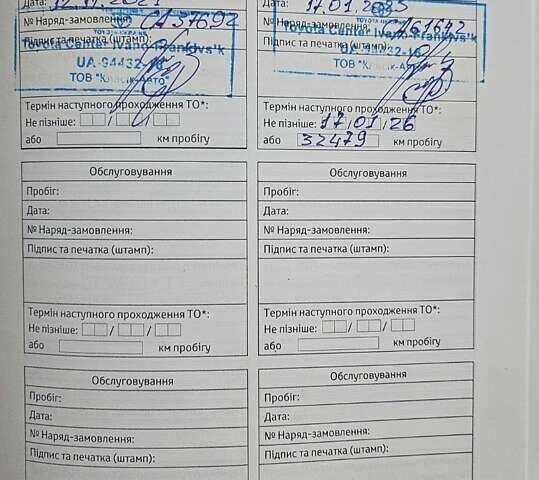 Дата: 12.11.2021
№ Наряд-замовлення: СА37692
Підпис та печатка (штамп):
TOYOTA-UKRAINE
Toyota Center Ivano-Frankivs'k
UA-94432-16
ТОВ "Класик-Авто"
Термін наступного проходження ТО*:
Не пізніше: / /
або км пробігу
Дата: 17.01.2025
№ Наряд-замовлення:
Підпис та печатка (штамп):
Toyota Center Ivano-Frankivs'k
UA-94432-16
ТОВ "Класик-Авто"
Термін наступного проходження ТО*:
Не пізніше: 17/01/26
або 32479 км пробігу
Обслуговування
Пробіг:
Дата:
№ Наряд-замовлення:
Підпис та печатка (штамп):
Термін наступного проходження ТО*:
Не пізніше: / /
або км пробігу
Обслуговування
Пробіг:
Дата:
№ Наряд-замовлення:
Підпис та печатка (штамп):
Термін наступного проходження ТО*:
Не пізніше: / /
або км пробігу
Обслуговування
Пробіг:
Дата:
№ Наряд-замовлення:
Підпис та печатка (штамп):
Обслуговування
Пробіг:
Дата:
№ Наряд-замовлення:
Підпис та печатка (штамп):